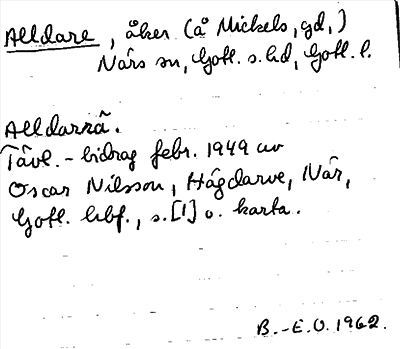 Alldare, åker (å Mickels, gd,)
Närs sn, Gotl. s. hd, Gotl. l.
Alldarrä.
Tävl.-bidrag febr. 1949 av
Oscar Nilsson, Hägdarve, När,
Gotl. hbf., s. [1] o. karta.
B.-E.O. 1962.